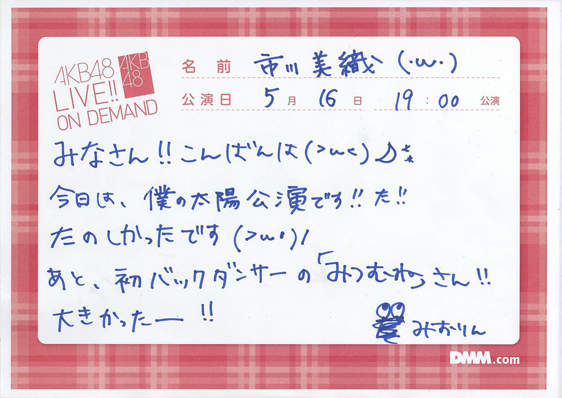 AKB48
LIVE!!
ON DEMAND
AKB
48
名前 市川美織 (・ω・)
公演日 5月16日 19:00 公演
みなさん!!こんばんは(>ω<)♪
今日は、僕の太陽公演です!!た!!
たのしかったです(>ω・)ノ
あと、初バックダンサーの「みつむねさん!!
大きかったー!!
みおりん
DMM.com